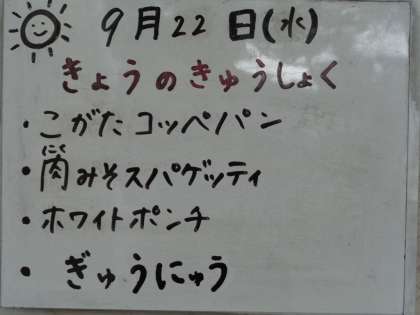 9月22日(水)
きょうのきゅうしょく
・こがたコッペパン
・肉みそスパゲッティ
にく
・ホワイトポンチ
・ぎゅうにゅう